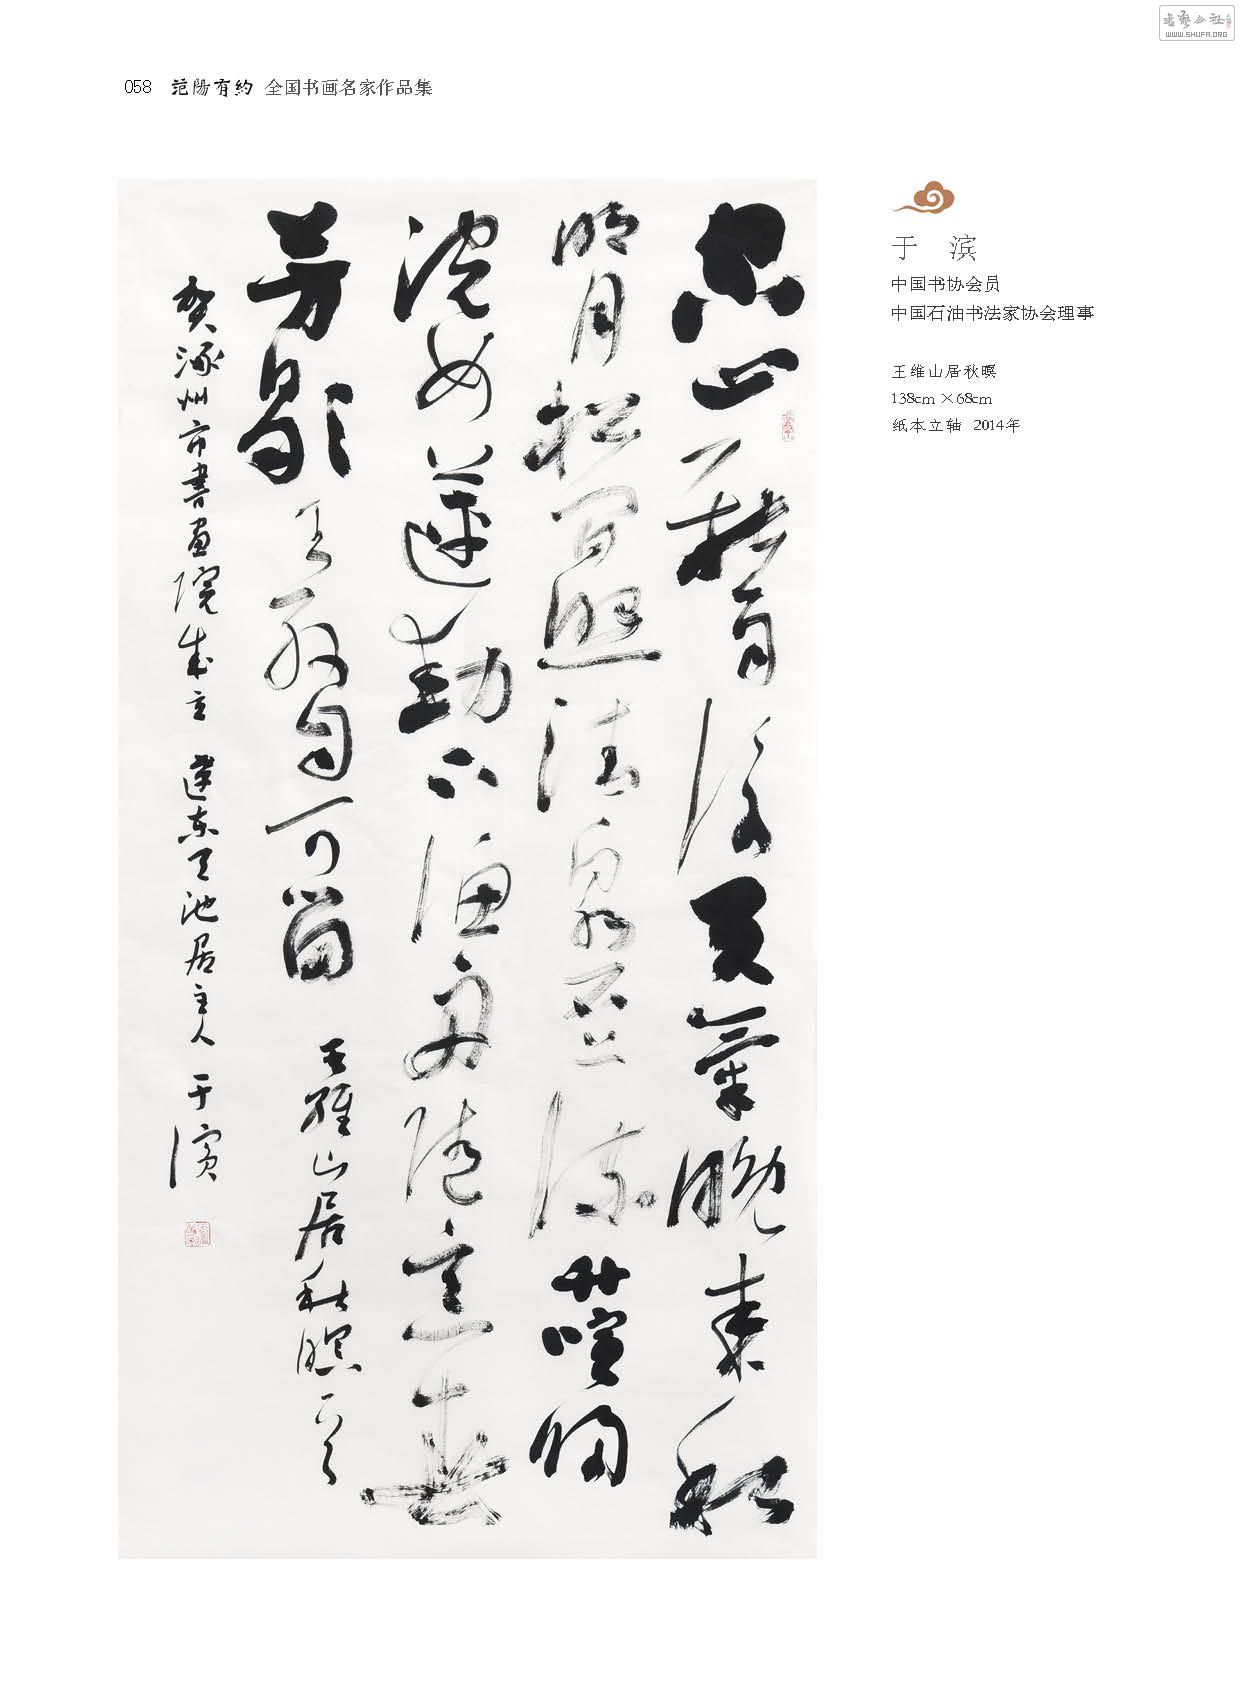 058 范陽有約 全国书画名家作品集
于 滨
中国书协会员
中国石油书法家协会理事
王维山居秋暝
138cm×68cm
纸本立轴 2014年
空山新雨後天氣晚來秋
明月松間照清泉石上流竹喧歸
浣女蓮動下漁舟随意春
芳歇王孫自可留 王維山居秋暝一首
賀涿州市書畫院成立 东天池居主人 于濱
书艺公社
WWW.SHUFA.ORG